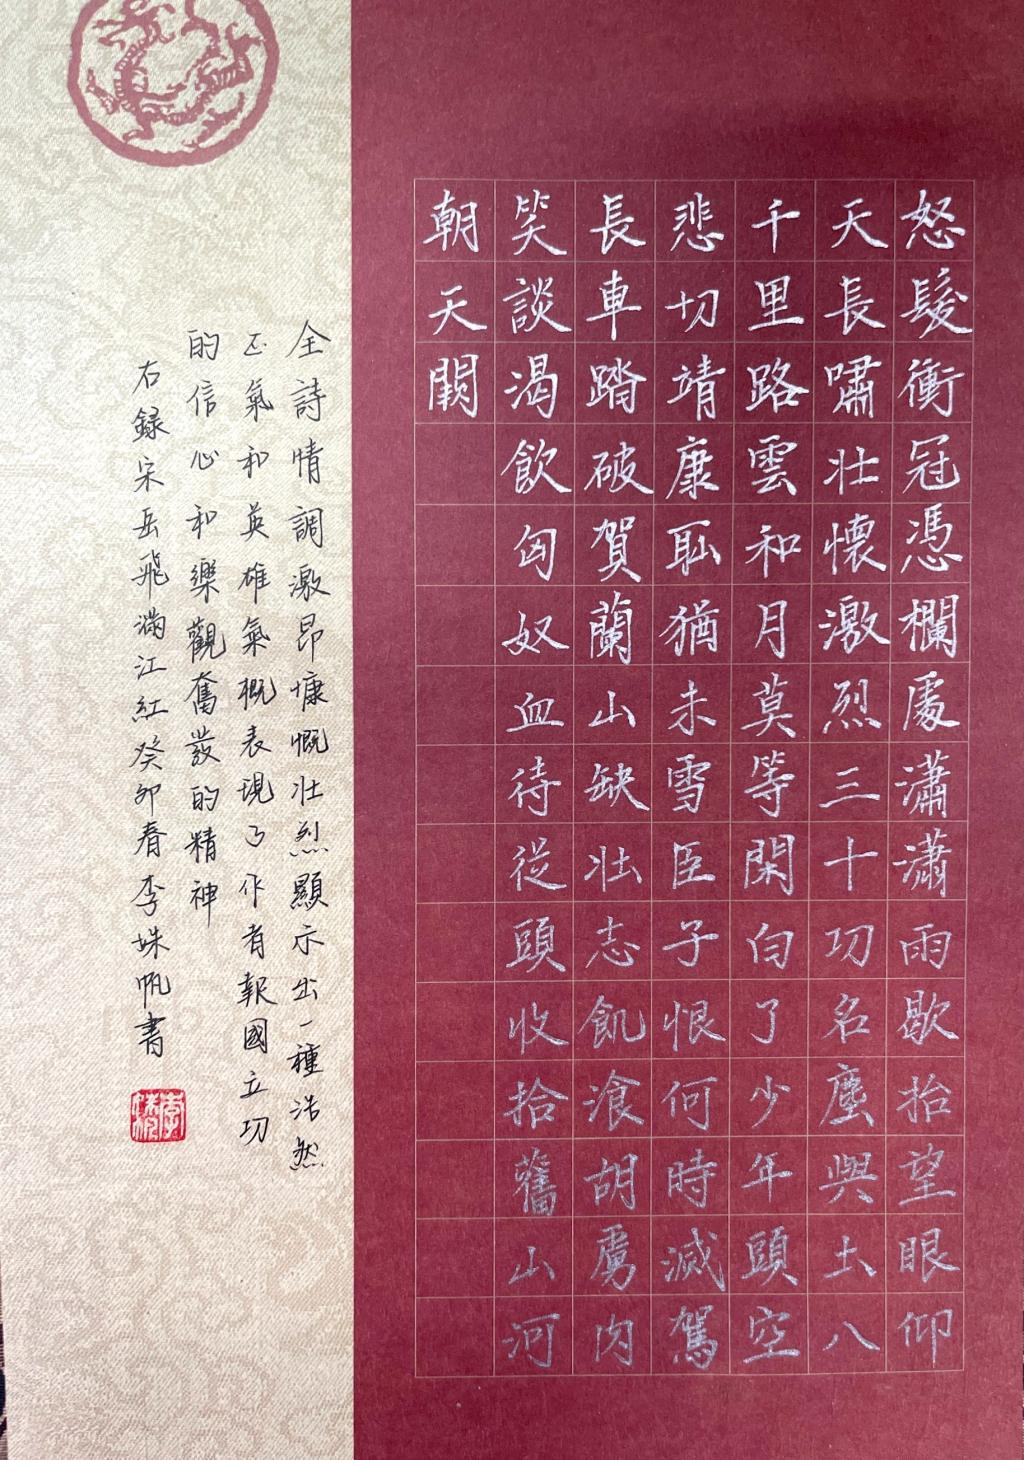 怒髮衝冠憑欄處瀟瀟雨歇抬望眼仰
天長嘯壯懷激烈三十功名塵與土八
千里路雲和月莫等閑白了少年頭空
悲切靖康恥猶未雪臣子恨何時滅駕
長車踏破賀蘭山缺壯志飢飡胡虜肉
笑談渴飲匈奴血待從頭收拾舊山河
朝天闕
全詩情調激昂慷慨壯烈顯示出一種浩然
正氣和英雄氣概表現了作者報國立功
的信心和樂觀奮發的精神
右録宋岳飛滿江紅癸卯春李姝帆書